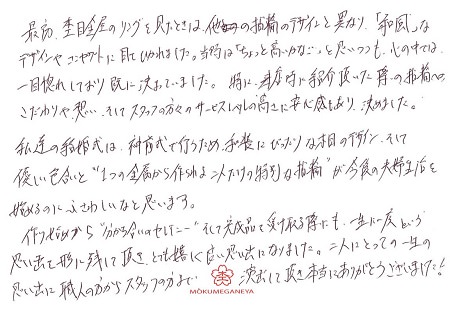 最初、杢目金屋のリングを見たときは、他の指輪のデザインと異なり、「和風」な
デザインやコンセプトに目をひかれました。当初は「ちょっと高いかな」と思いつつも、心の中では
一目惚れしており既に決まっていました。特に、来店時に紹介頂いた際の指輪への
こだわりや想い、そしてスタッフの方々のサービスレベルの高さに安心感もあり、決めました。
私達の結婚式は、神前式で行うため、和装にぴったりな木目のデザイン、そして
優しい色合いと"1つの金属から作られる二人だけの特別な指輪"が今後の夫婦生活を
始めるのにふさわしいなと思います。
作り始めから"分かち合いのセレモニー"そして完成品を受け取る際にも、一生に一度という
思い出を形に残して頂き、とても嬉しく良い思い出になりました。二人にとっての一生の
思い出に職人の方からスタッフの方まで 演出して頂き本当にありがとうございました!
MOKUMEGANEYA